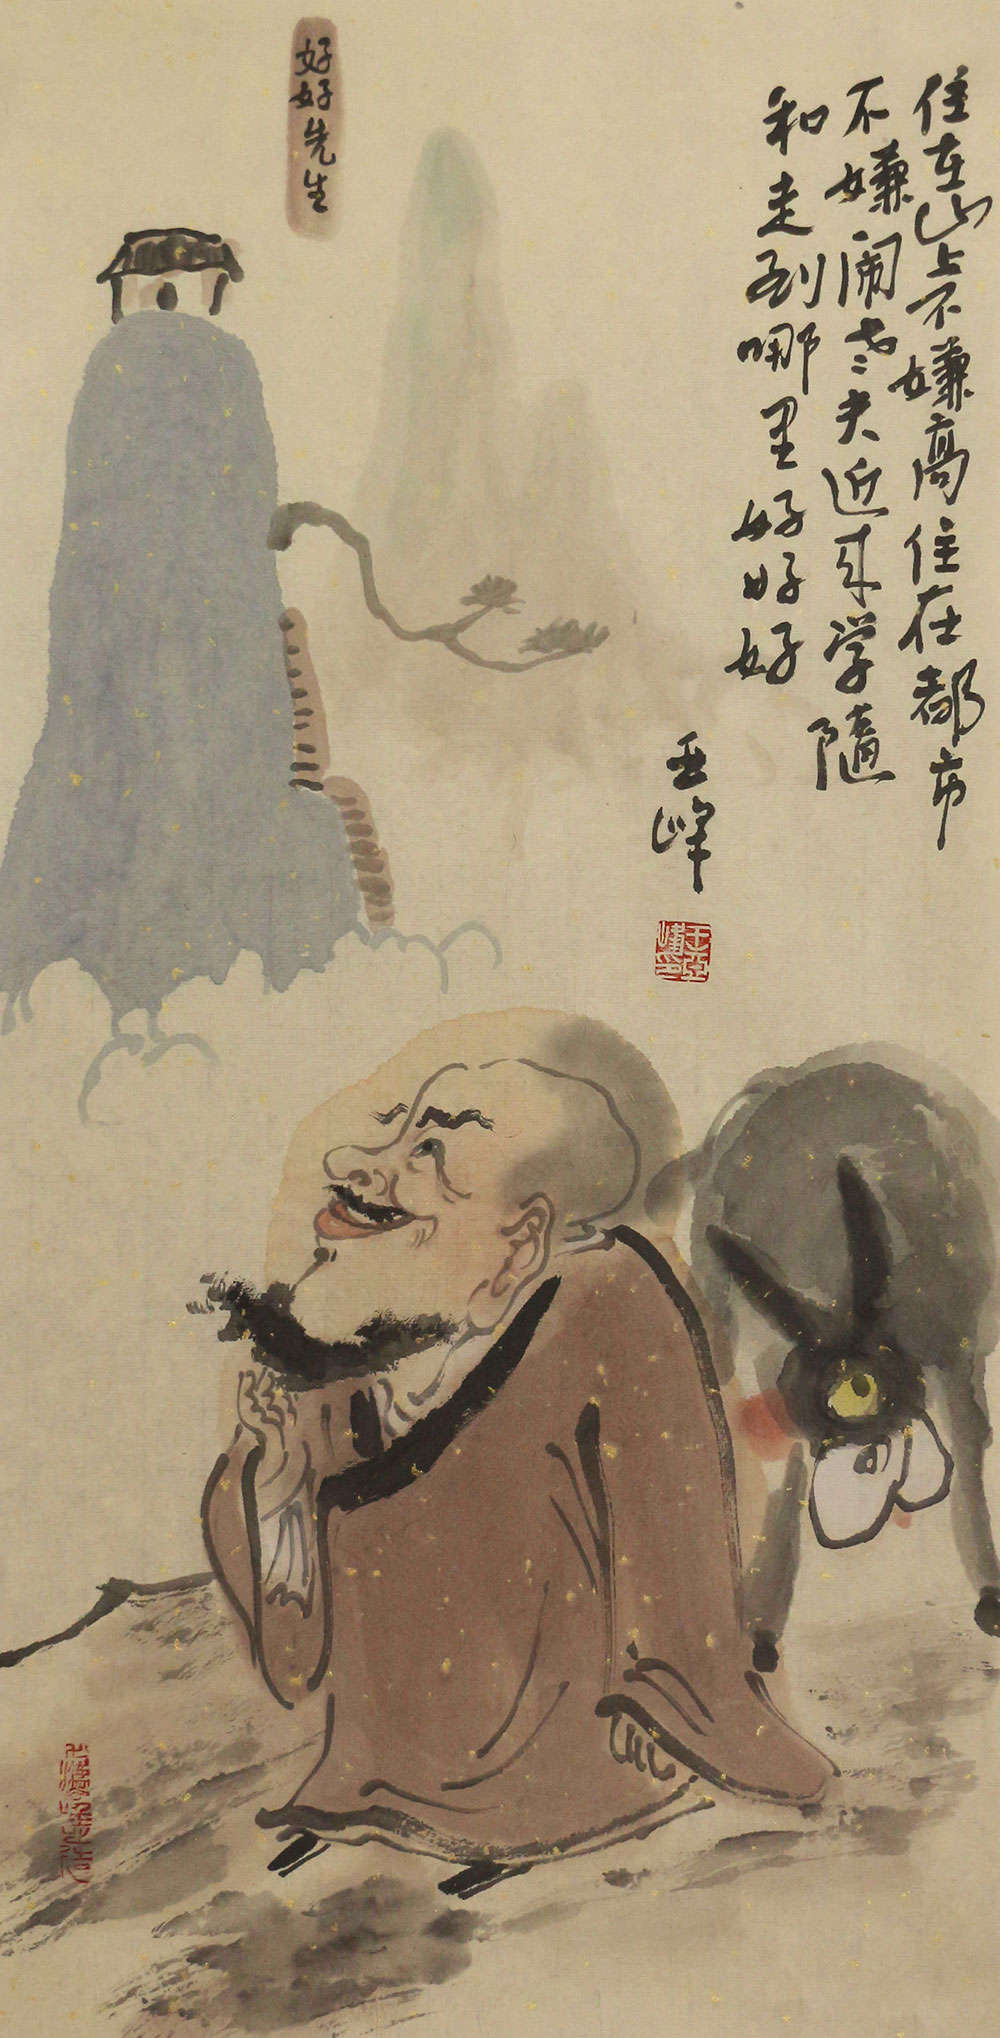 好好先生
住在山上不嫌高住在都市
不嫌闹老夫近来学随
和走到哪里好好好
亚峰